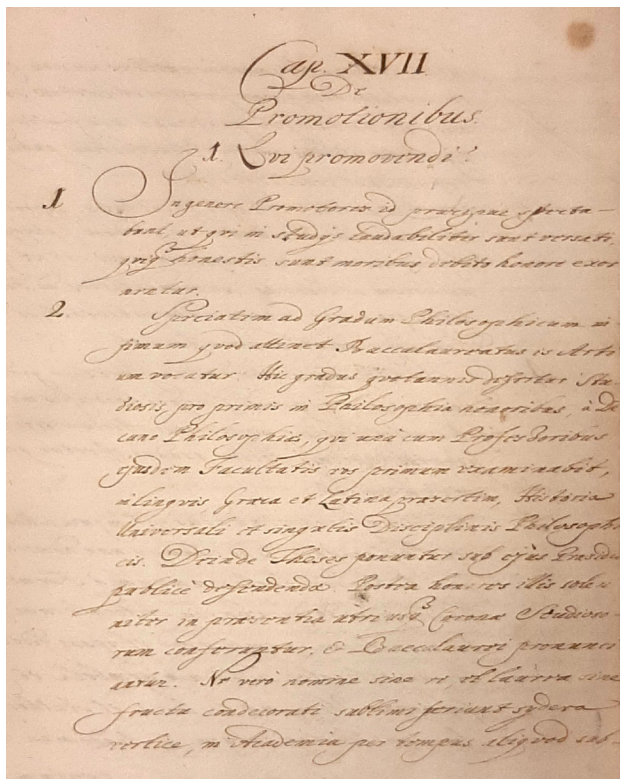 Cap. XVII
De
Promotionibus.
1. Qvi promovendi?
1 In genere Promotores id præcipue specta-
bant, ut qvi in studijs laudabiliter sunt versati,
qviq honestis sunt moribus, debito honore exor
nentur.
2. Speciatim ad Gradum Philosophicum in
fimum qvod attinet Baccalaureatus is Arti
um vocatur. Hic gradus qvotannis defertur Stu
diosis pro primis in Philosophia honoribus, à De
cano Philosophiæ, qvi unà cum Professoribus
ejusdem Facultatis eos primum examinabit,
in lingvis Græca et Latina præsertim, Historia
Universali et singulis Disciplinis Philosophi
cis. Deinde Theses ponuntur sub ejus Præsidio
publicè defendendæ. Postea honores illis solen
niter in præsentia utriusq Coronæ Studioso-
rum conferuntur, & Baccalaurei pronunci
antur. Ne verò nomine sine re, et laurea sine
fructu condecorati sublimi feriant sydera
vertice, in Academia per tempus aliqvod sub-